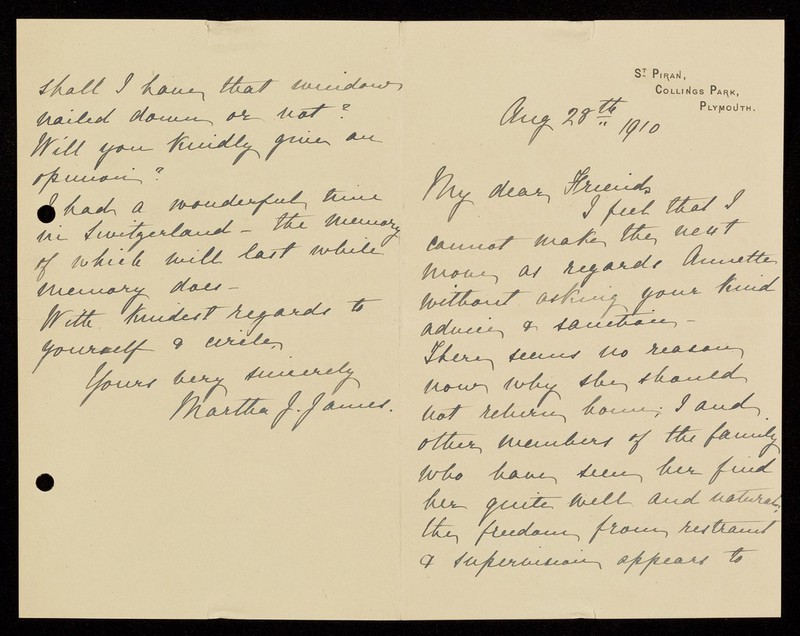 St PIRAN,
COLLINGS PARK,
PLYMOUTH.
Aug 28th 1910
My dear Friends
I feel that I
cannot make the next
move as regards Annette
without asking your kind
advice & sanction -
There seems no reason
now why she should
not return home; I and
other members of the family
who have seen her find
her quite well and natural,
the freedom from restraint
& supervision appears to
shall I have that window
nailed down or not?
Will you kindly give an
opinion?
I had a wonderful time
in Switzerland - the memory
of which will last while
memory does -
With kindest regards to
yourself & circle,
Yours very sincerely
Martha J. James.